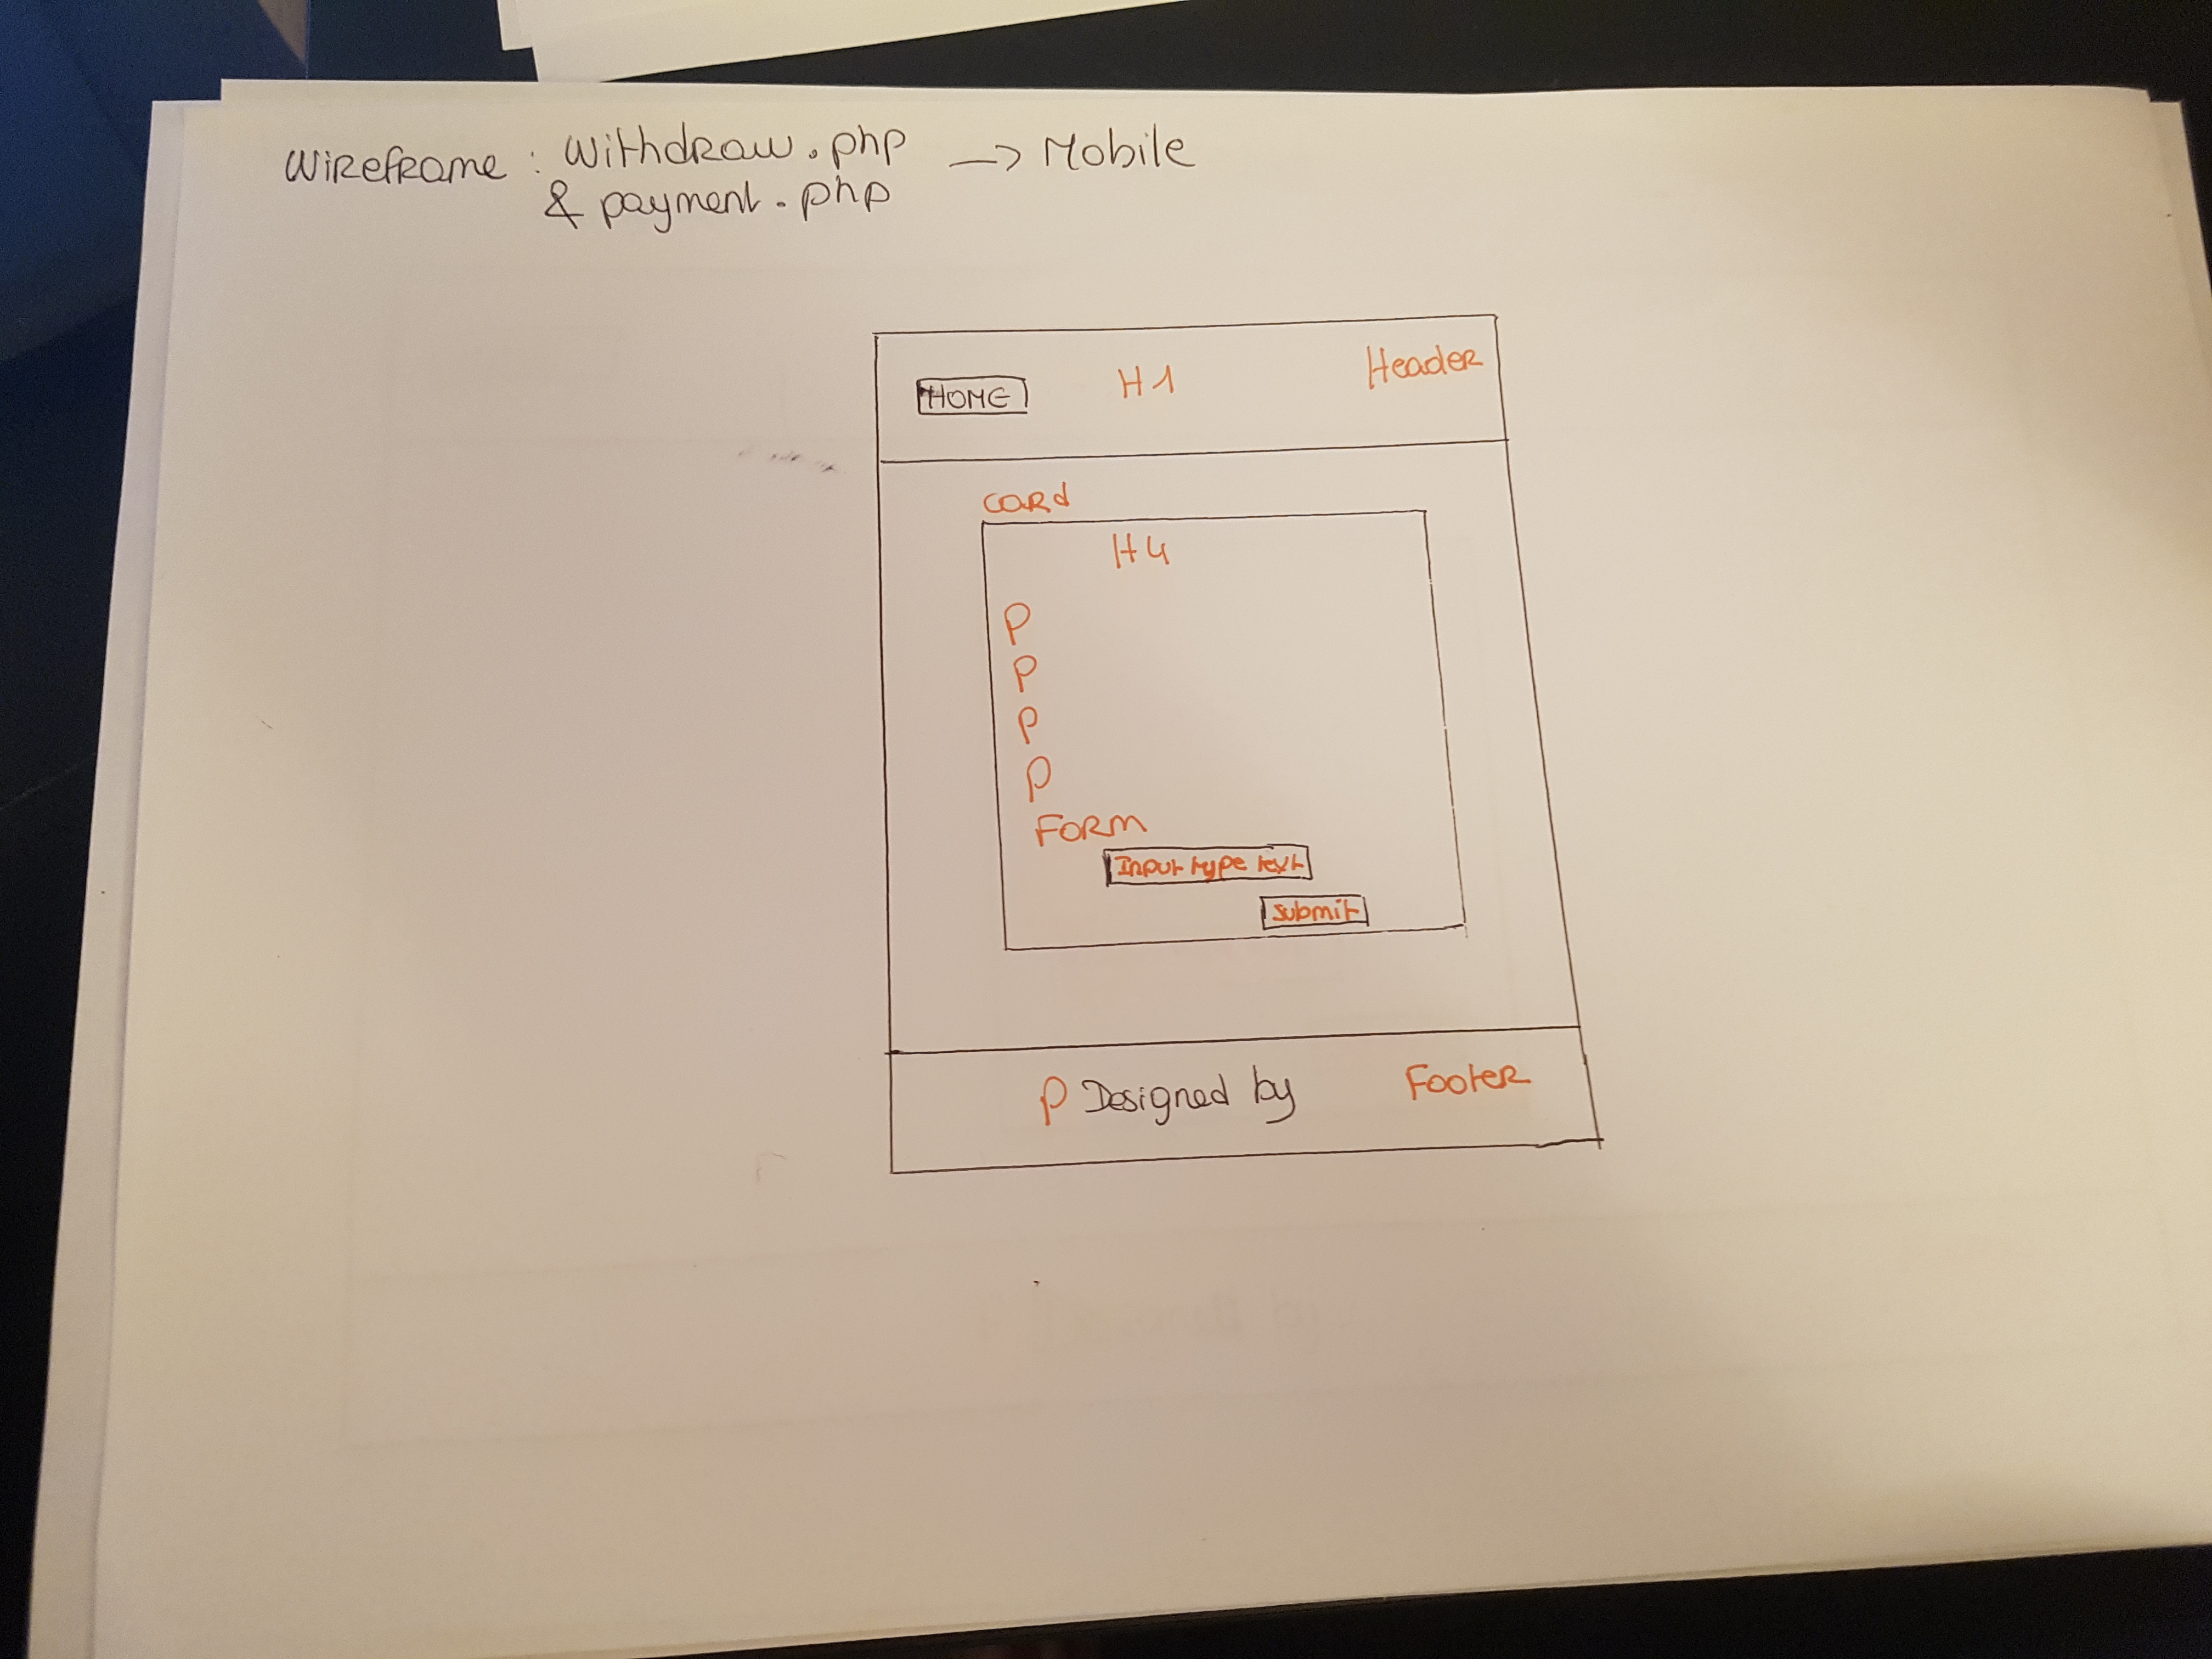 Wireframe : Withdraw.php → Mobile
& payment.php
HOME H1 Header
Card
H4
P
P
P
P
Form
Input type text
Submit
P Designed by Footer